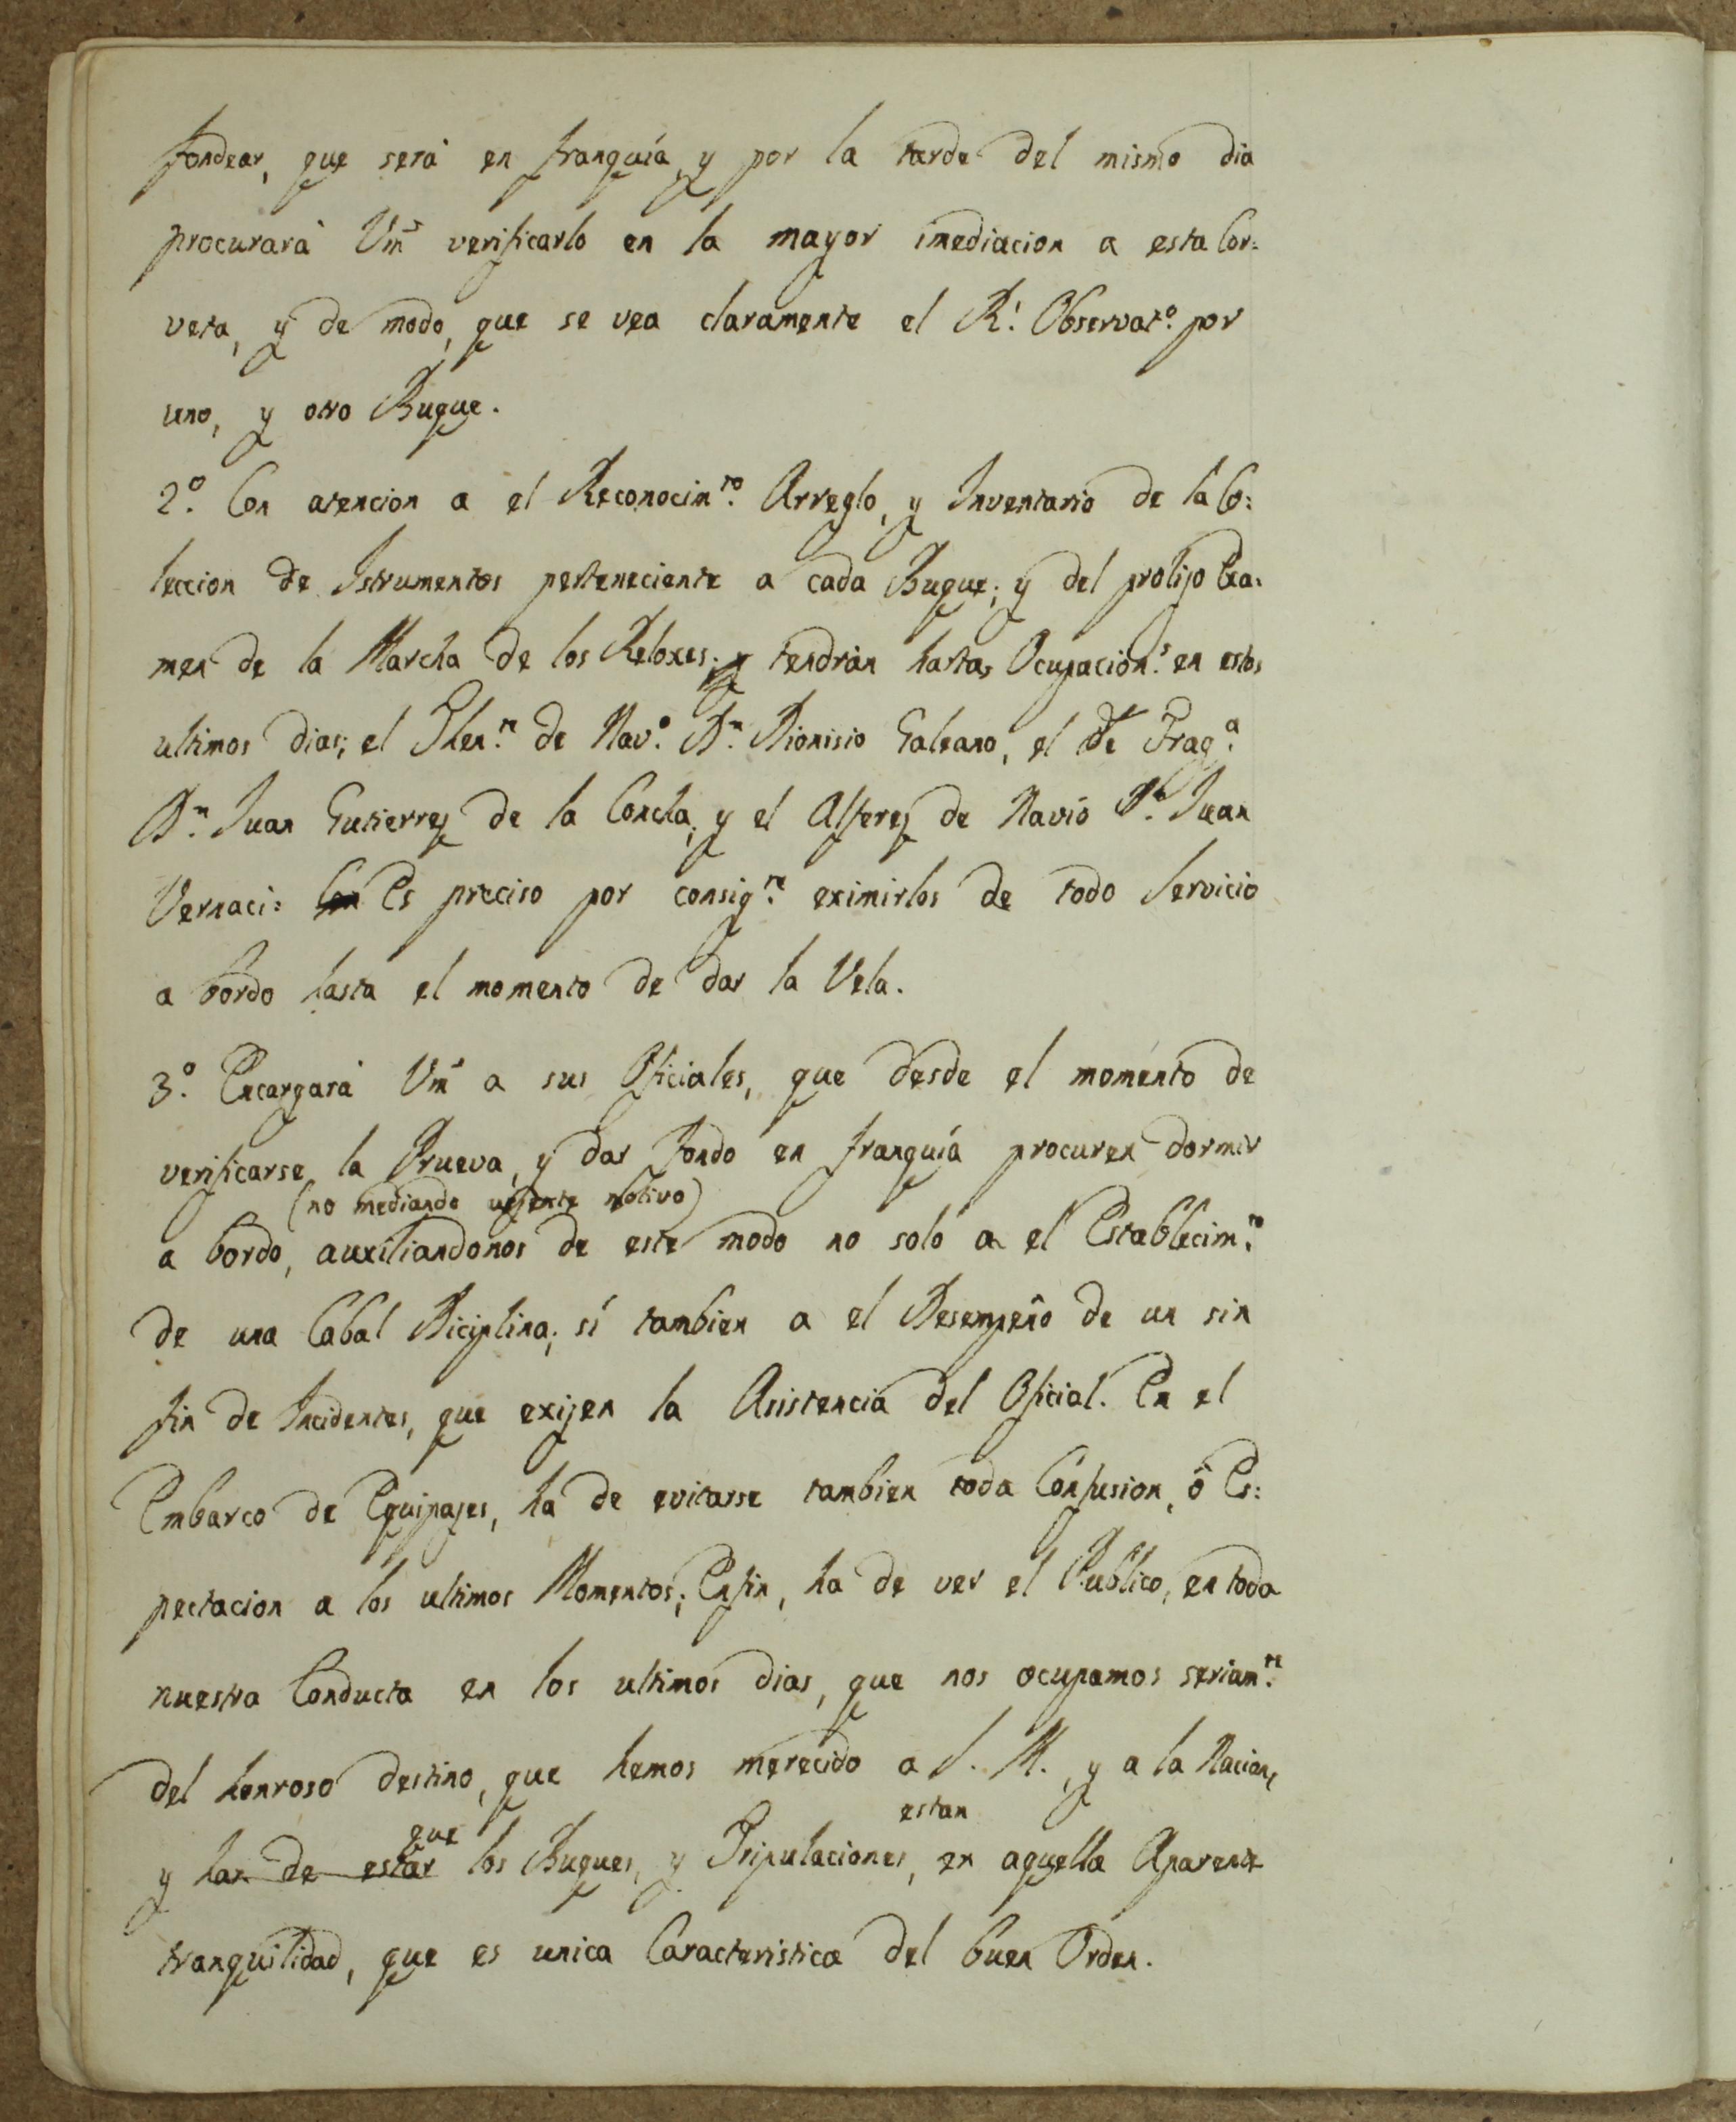 fondear, que será en franquía, y por la tarde del mismo dia
procurará Vm.^d verificarlo en la mayor imediacion a esta Cor=
veta, y de modo, que se vea claramente el R.^l Observat.^o por
uno, y otro Buque.
2.^o Con atencion a el Reconocim.^to Arreglo, y Inventario de la Co=
leccion de Istrumentos perteneciente a cada Buque; y del prolijo Exa=
men de la Marcha de los Reloxes; y tendrán hartas Ocupacion.^s en estos
ultimos dias; el Then.^te de Nav.^o D.^n Dionisio Galeano, el de Frag.^a
D.^n Juan Gutierrez de la Concha, y el Alferez de Navio D.^n Juan
Vernaci: Con Es preciso por consig.^te eximirlos de todo Servicio
a bordo hasta el momento de dar la Vela.
3.^o Encargará Vm.^d a sus Oficiales, que desde el momento de
verificarse, la Prueva, y dar fondo en franquía procuren dormir
(no mediando urjente motivo)
a bordo, auxiliandonos de este modo no solo a el Establecim.^to
de una Cabal Diciplina; sí tambien a el Desempeño de un sin
fin de Incidentes, que exijen la Asistencia del Oficial. En el
Embarco de Equipajes, ha de evitarse tambien toda Confusion, ó Es=
pectacion a los ultimos Momentos; Enfin, ha de ver el Publico, en toda
nuestra Conducta en los ultimos dias, que nos ocupamos seriam.^te
del honroso destino, que hemos merecido a S. M., y a la Nacion,
que estan
y han de estar los Buques, y Tripulaciones, en aquella Aparente
tranquilidad, que es unica Caracteristica del buen Orden.